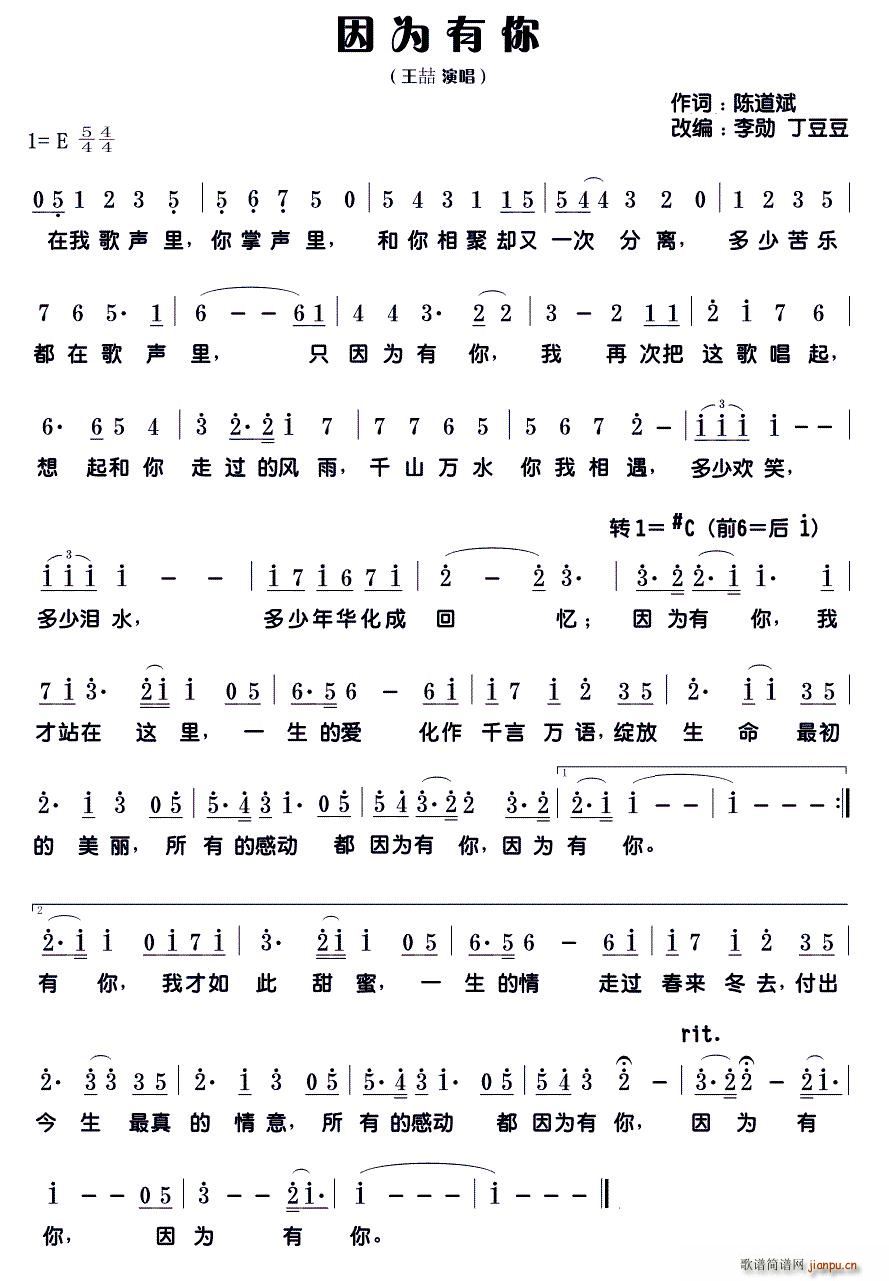 因为有你
（王喆 演唱）
作词：陈道斌
1= E 5/4 4/4
改编：李勋 丁豆豆
0 5 1 2 3 5 | 5 6 7 5 0 | 5 4 3 1 1 5 | 5 4 4 3 2 0 | 1 2 3 5 |
在我歌声里，你掌声里， 和你相聚却又一次 分离， 多少苦乐
7 6 5· 1 | 6 – – 6 1 | 4 4 3· 2 2 | 3 – 2 1 1 | 2 1 7 6 |
都在歌 声里， 只因为有 你， 我 再次把 这歌唱起，
6· 6 5 4 | 3 2· 2 1 7 | 7 7 6 5 | 5 6 7 2 – | 1 1 1 1 – – |
想 起和你 走过的风雨，千山万水 你我相遇， 多少欢笑，
转1=#C（前6=后 i）
1 1 1 1 – – | 1 7 1 6 7 1 | 2 – 2 3· | 3· 2 2· 1 1· 1 |
多少泪水， 多少年华化成 回 忆； 因为有 你， 我
7 1 3· 2 1 1 0 5 | 6· 5 6 – 6 1 | 1 7 1 2 3 5 | 2· 1 1 3 5 |
才站在 这里， 一 生的爱 化作 千言万语，绽放生 命 最初
2· 1 3 0 5 | 5· 4 3 1· 0 5 | 5 4 3· 2 2 3· 2 | 1. 2· 1 1 – – | 1 – – :||
的 美丽， 所有的感动 都 因为有 你，因为有 你。
2. 2· 1 1 0 1 7 1 | 3· 2 1 1 0 5 | 6· 5 6 – 6 1 | 1 7 1 2 3 5 |
有 你， 我才如 此 甜蜜， 一 生的情 走过 春来 冬去，付出
rit.
2· 3 3 3 5 | 2· 1 3 0 5 | 5· 4 3 1· 0 5 | 5 4 3 2 – | 3· 2 2 – 2 1· |
今生 最真的 情意， 所有的感动 都 因为有你， 因 为 有
1 – – 0 5 | 3 – – 2 1· | 1 – – – | 1 – – ||
你， 因为 有 你。
歌谱简谱网
jianpu.cn